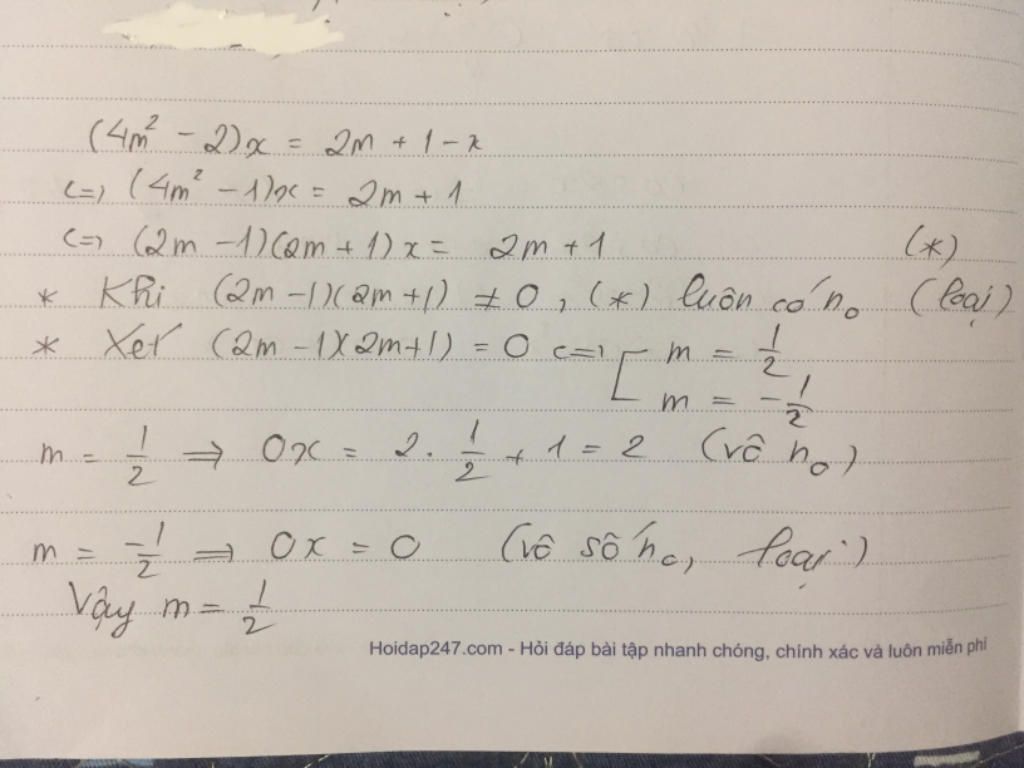 (4m² - 2)x = 2m + 1 - x
<=> (4m² - 1)x = 2m + 1
<=> (2m - 1)(2m + 1)x = 2m + 1 (*)
* Khi (2m - 1)(2m + 1) ≠ 0, (*) luôn có n₀ (loại)
* Xét (2m - 1)(2m + 1) = 0 <=> [ m = 1/2
m = -1/2
m = 1/2 => 0x = 2 . 1/2 + 1 = 2 (vô n₀)
m = -1/2 => 0x = 0 (vô số n₀, loại)
Vậy m = 1/2
Hoidap247.com - Hỏi đáp bài tập nhanh chóng, chính xác và luôn miễn phí